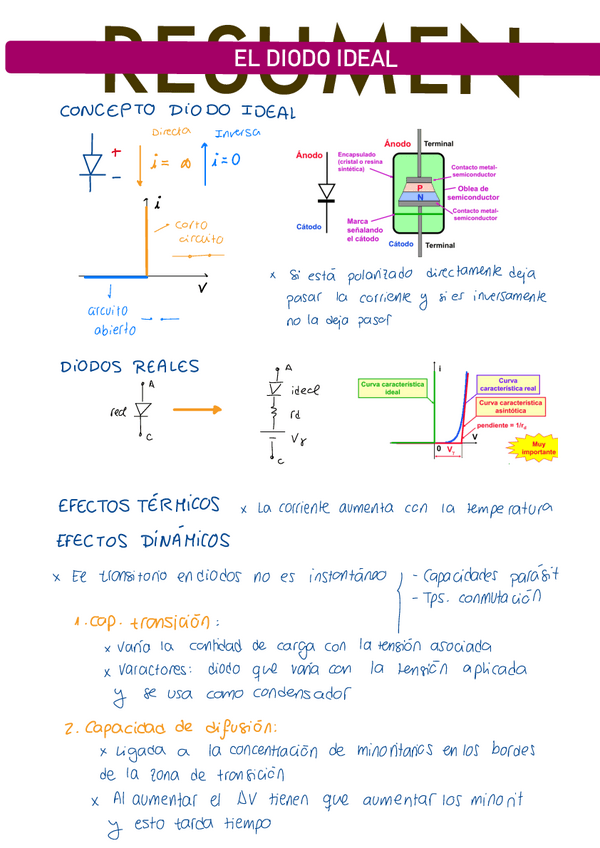 RESUMEN
EL DIODO IDEAL
CONCEPTO DIODO IDEAL
Directa
Inversa
+
-
i = ∞
i=0
i
corto
circuito
V
circuito
abierto
Ánodo
Cátodo
Encapsulado
(cristal o resina
sintética)
Marca
señalando
el cátodo
Ánodo
Terminal
P
N
Contacto metal-
semiconductor
Oblea de
semiconductor
Contacto metal-
semiconductor
Cátodo
Terminal
x Si está polarizado directamente deja
pasar la corriente y si es inversamente
no la deja pasar
DIODOS REALES
A
real
C
A
ideal
rd
Vγ
C
Curva característica
ideal
i
Curva
característica real
Curva característica
asintótica
pendiente = 1/rd
V
0
Vγ
Muy
importante
EFECTOS TÉRMICOS x La corriente aumenta con la temperatura
EFECTOS DINÁMICOS
x El transitorio en diodos no es instantáneo
- Capacidades parásit
- Tps. conmutación
1. Cap. transición:
x Varía la cantidad de carga con la tensión asociada
x Varactores: diodo que varía con la tensión aplicada
y se usa como condensador
2. Capacidad de difusión:
x Ligada a la concentración de minoritarios en los bordes
de la zona de transición
x Al aumentar el ΔV tienen que aumentar los minorit
y esto tarda tiempo